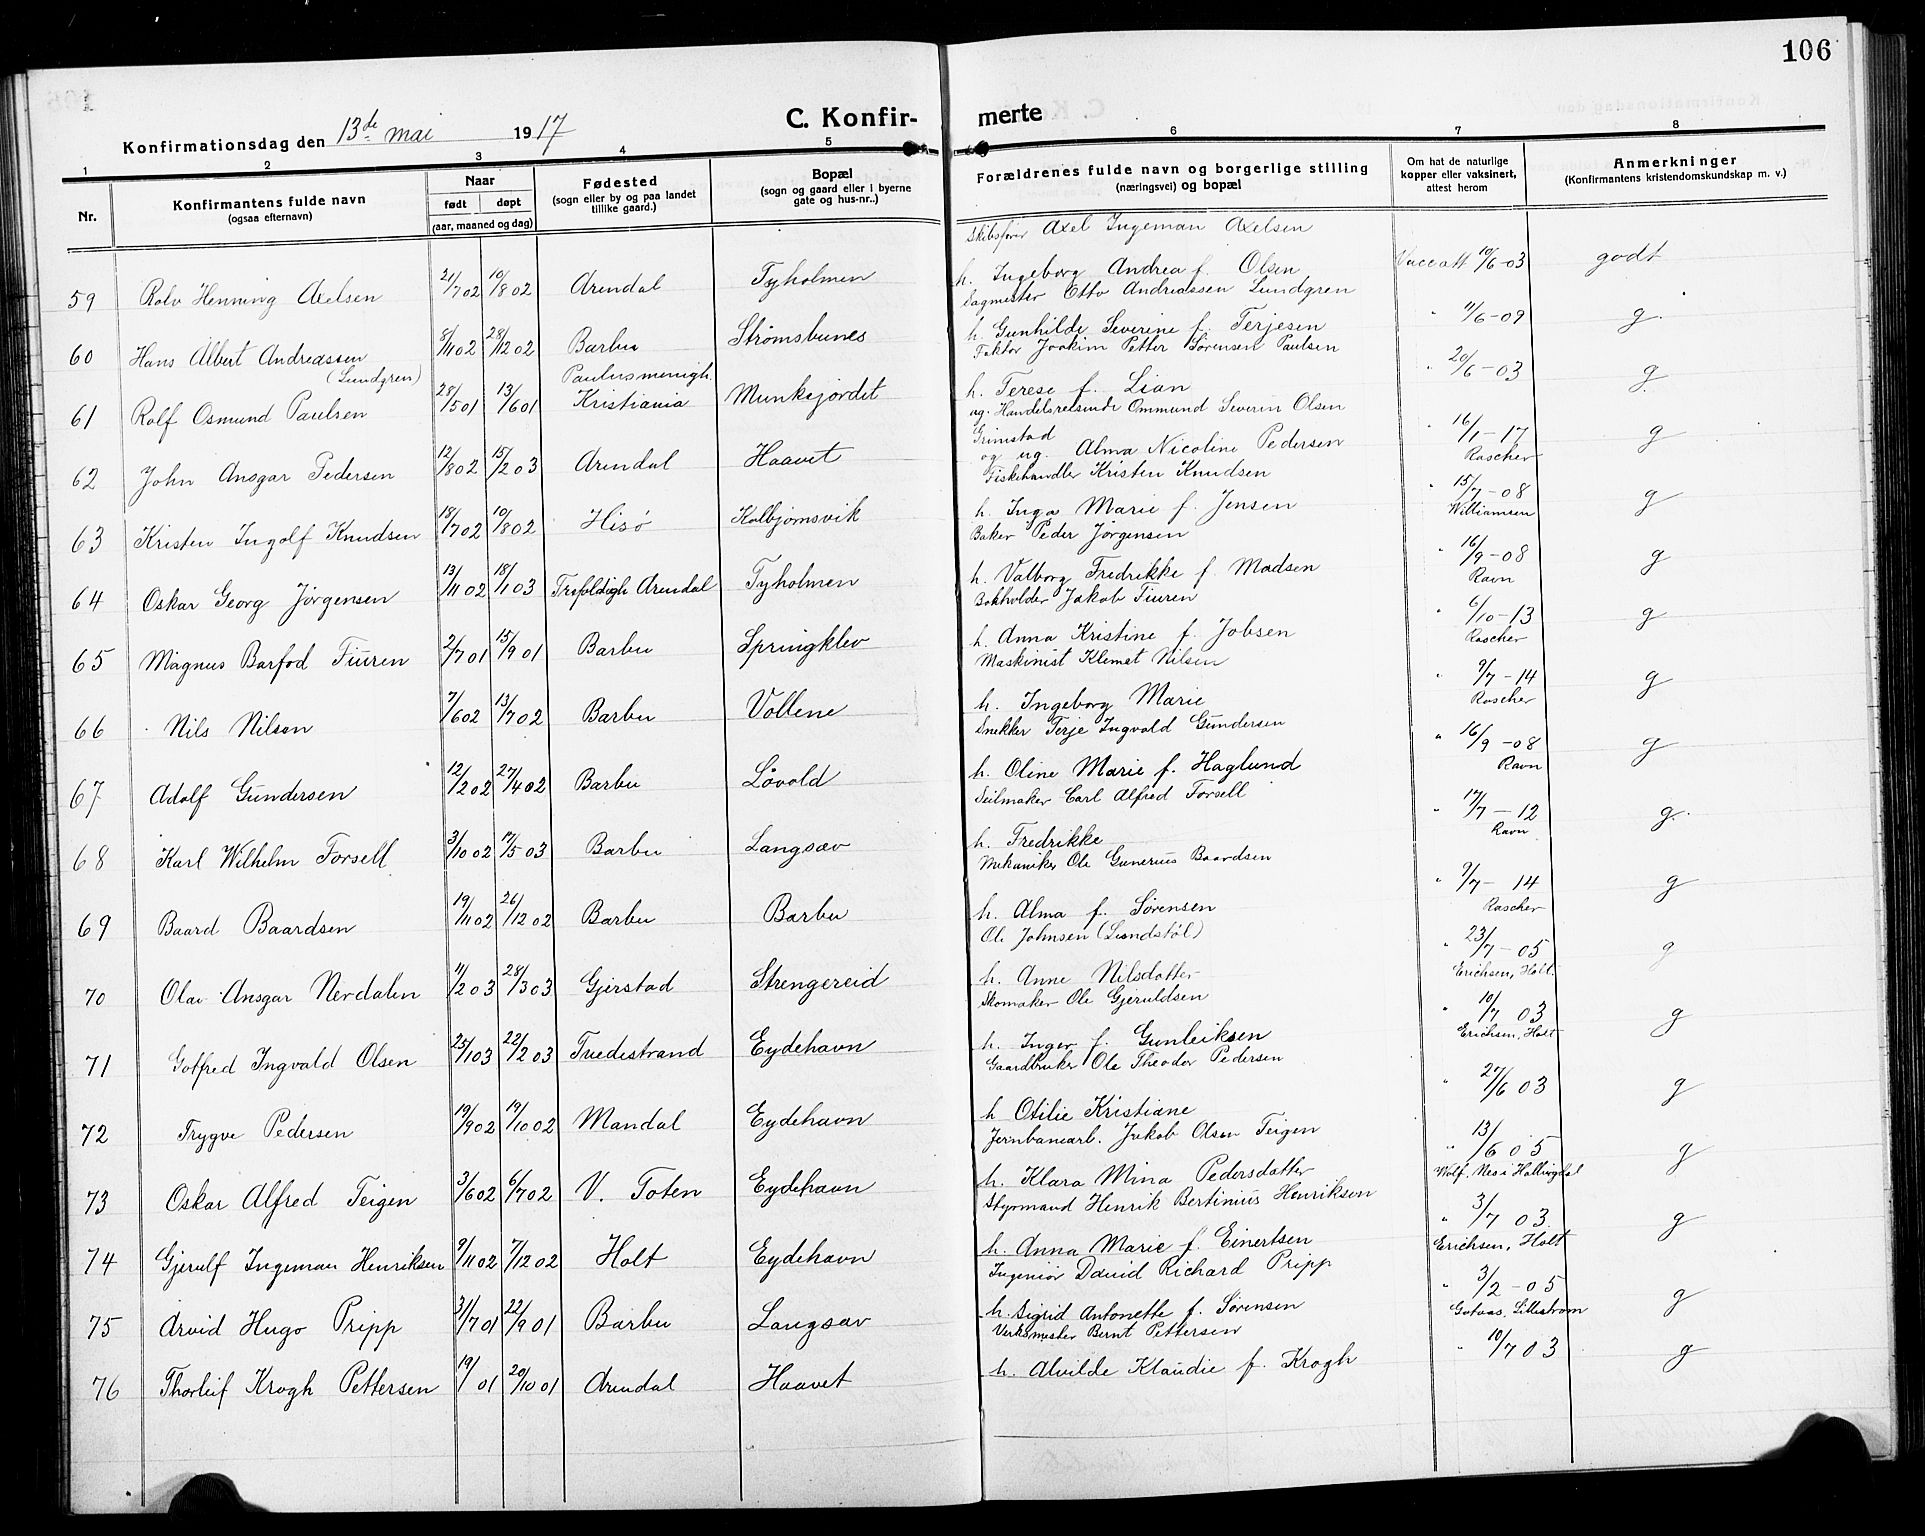 106
C. Konfir-merte
Konfirmationsdag den 13de mai 1917
1 2 3 4 5 6 7 8
Nr.
Konfirmantens fulde navn
(ogsaa efternavn)
Naar
født døpt
(aar, maaned og dag)
Fødested
(sogn eller by og paa landet
tillike gaard.)
Bopæl
(sogn og gaard eller i byerne
gate og hus-nr..)
Forældrenes fulde navn og borgerlige stilling
(næringsvei) og bopæl
Om hat de naturlige
kopper eller vaksinert,
attest herom
Anmerkninger
(Konfirmantens kristendomskundskap m. v.)
Skibsfører Axel Ingeman Axelsen
59 Rolv Henning Axelsen 21/7 02 10/8 02 Arendal Tyholmen h. Ingeborg Andrea f. Olsen Vaccatt 10/6-03 godt
Sagmester Otto Andreassen Lundgren
60 Hans Albert Andreassen 8/11 02 28/12 02 Barbu Strømsbunes h. Gunhilde Severine f. Terjesen " 11/6-09 g.
(Lundgren)
Faktor Joakim Petter Sørensen Paulsen
61 Rolf Osmund Paulsen 28/5 01 13/6 01 Paulusmenigh. Kristiania Munkejordet h. Terese f. Lian " 20/6-03 g.
ug. Handelsreisende Ommund Severin Olsen
Grimstad
62 John Ansgar Pedersen 12/8 02 15/2 03 Arendal Haavet og ug. Alma Nicoline Pedersen " 16/1-17 Rascher g
Fiskehandler Kristen Knudsen
63 Kristen Ingolf Knudsen 18/7 02 10/8 02 Hisø Kolbjørnsvik h. Inga Marie f. Jensen " 15/7-08 Williamsen g
Baker Peder Jørgensen
64 Oskar Georg Jørgensen 13/11 02 18/1 03 Trefoldigh Arendal Tyholmen h. Valborg Fredrikke f. Madsen " 16/9-08 Ravn g
Bokholder Jakob Tiuren
65 Magnus Barfod Tiuren 2/7 01 15/9 01 Barbu Springklev h. Anna Kristine f. Jobsen " 6/10-13 Rascher g
Maskinist Klemet Nilsen
66 Nils Nilsen 7/6 02 13/7 02 Barbu Vollene h. Ingeborg Marie " 9/7-14 Rascher g
Snekker Terje Ingvald Gundersen
67 Adolf Gundersen 12/2 02 27/4 02 Barbu Løvold h. Oline Marie f. Haglund " 16/9-08 Ravn g
Seilmaker Carl Alfred Forsell
68 Karl Wilhelm Forsell 3/10 02 17/5 03 Barbu Langsæv h. Fredrikke " 17/7-12 Ravn g.
Mekaniker Ole Gunerius Baardsen
69 Baard Baardsen 19/11 02 26/12 02 Barbu Barbu h. Alma f. Sørensen " 9/7-14 Rascher g
Ole Johnsen (Lundstøl)
70 Olav Ansgar Nerdalen 11/2 03 28/3 03 Gjerstad Strengereid h. Anne Nilsdatter " 23/7-05 Erichsen, Holt. g
Skomaker Ole Gjeruldsen
71 Gotfred Ingvald Olsen 25/1 03 22/2 03 Tvedestrand Eydehavn h. Inger f. Gunleiksen " 10/7 03 Erichsen, Holt g
Gaardbruker Ole Theodor Pedersen
72 Trygve Pedersen 19/9 02 19/10 02 Mandal Eydehavn h Otilie Kristiane " 27/6 03 g
Jernbanearb. Jakob Olsen Teigen
73 Oskar Alfred Teigen 3/6 02 6/7 02 V. Toten Eydehavn h. Klara Mina Pedersdatter " 13/6 05 Wolf. Nes i Hallingdal g
Styrmand Henrik Bertinius Henriksen
74 Gjerulf Ingeman Henriksen 9/11 02 7/12 02 Holt Eydehavn h. Anna Marie f. Einertsen " 3/7 03 Erichsen, Holt g
Ingeniør David Richard Pripp
75 Arvid Hugo Pripp 31/7 01 22/9 01 Barbu Langsæv h. Sigrid Antonette f. Sørensen " 3/2-05 Lillestrøm g
Verksmester Bernt Pettersen
76 Thorleif Krogh Pettersen 19/ 01 20/10 01 Arendal Haavet h. Alvilde Klaudie f. Krogh " 10/7 03 g